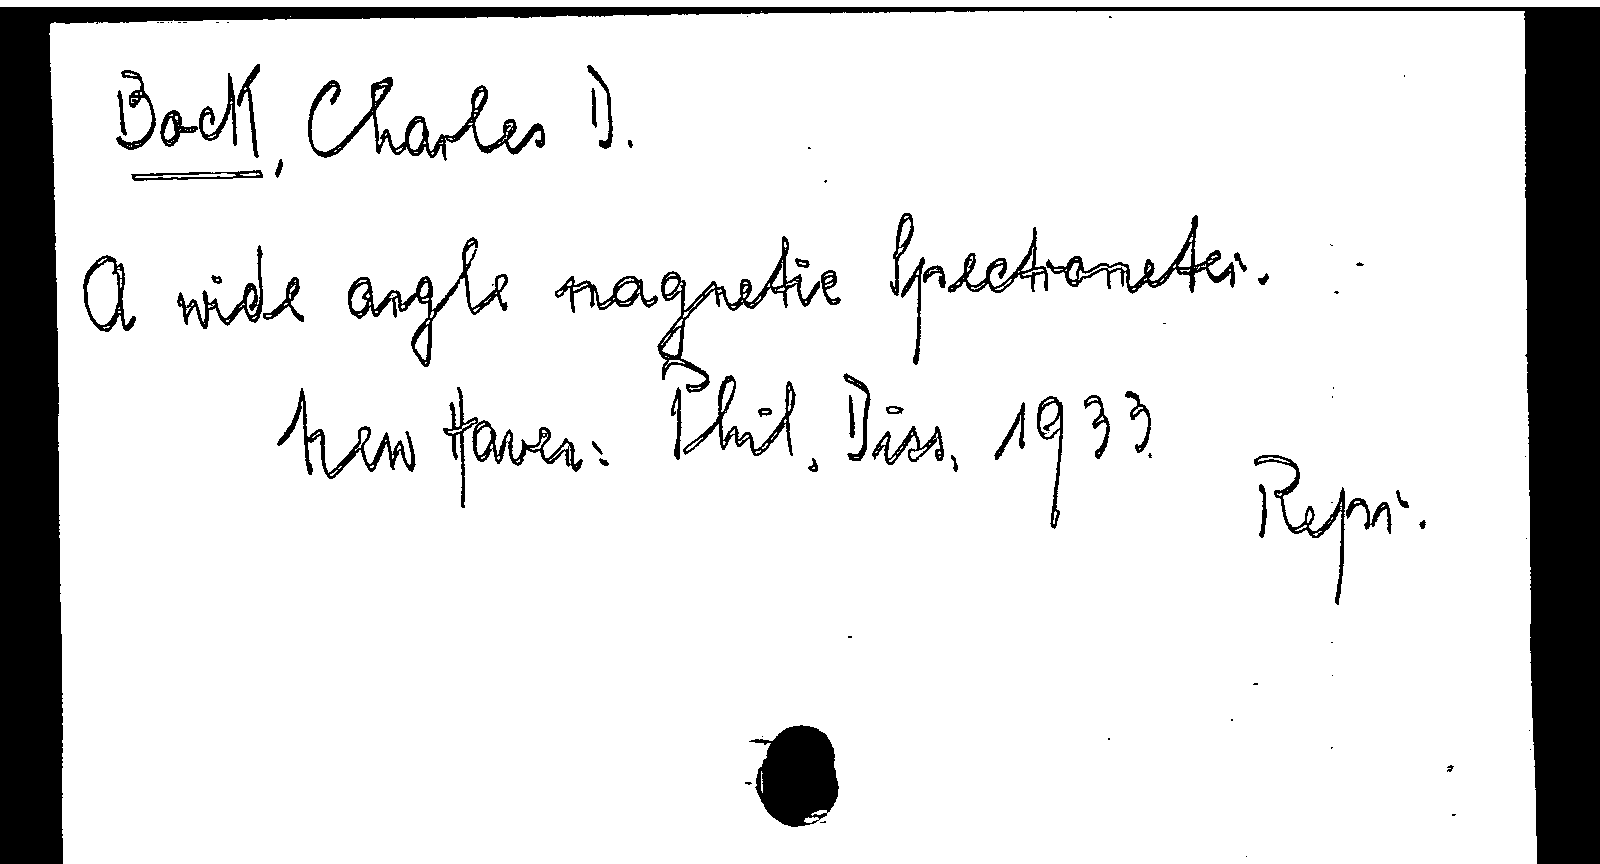 Bock, Charles D.
A wide angle magnetic Spectrometer.
New Haven: Phil. Diss. 1933
Repr.